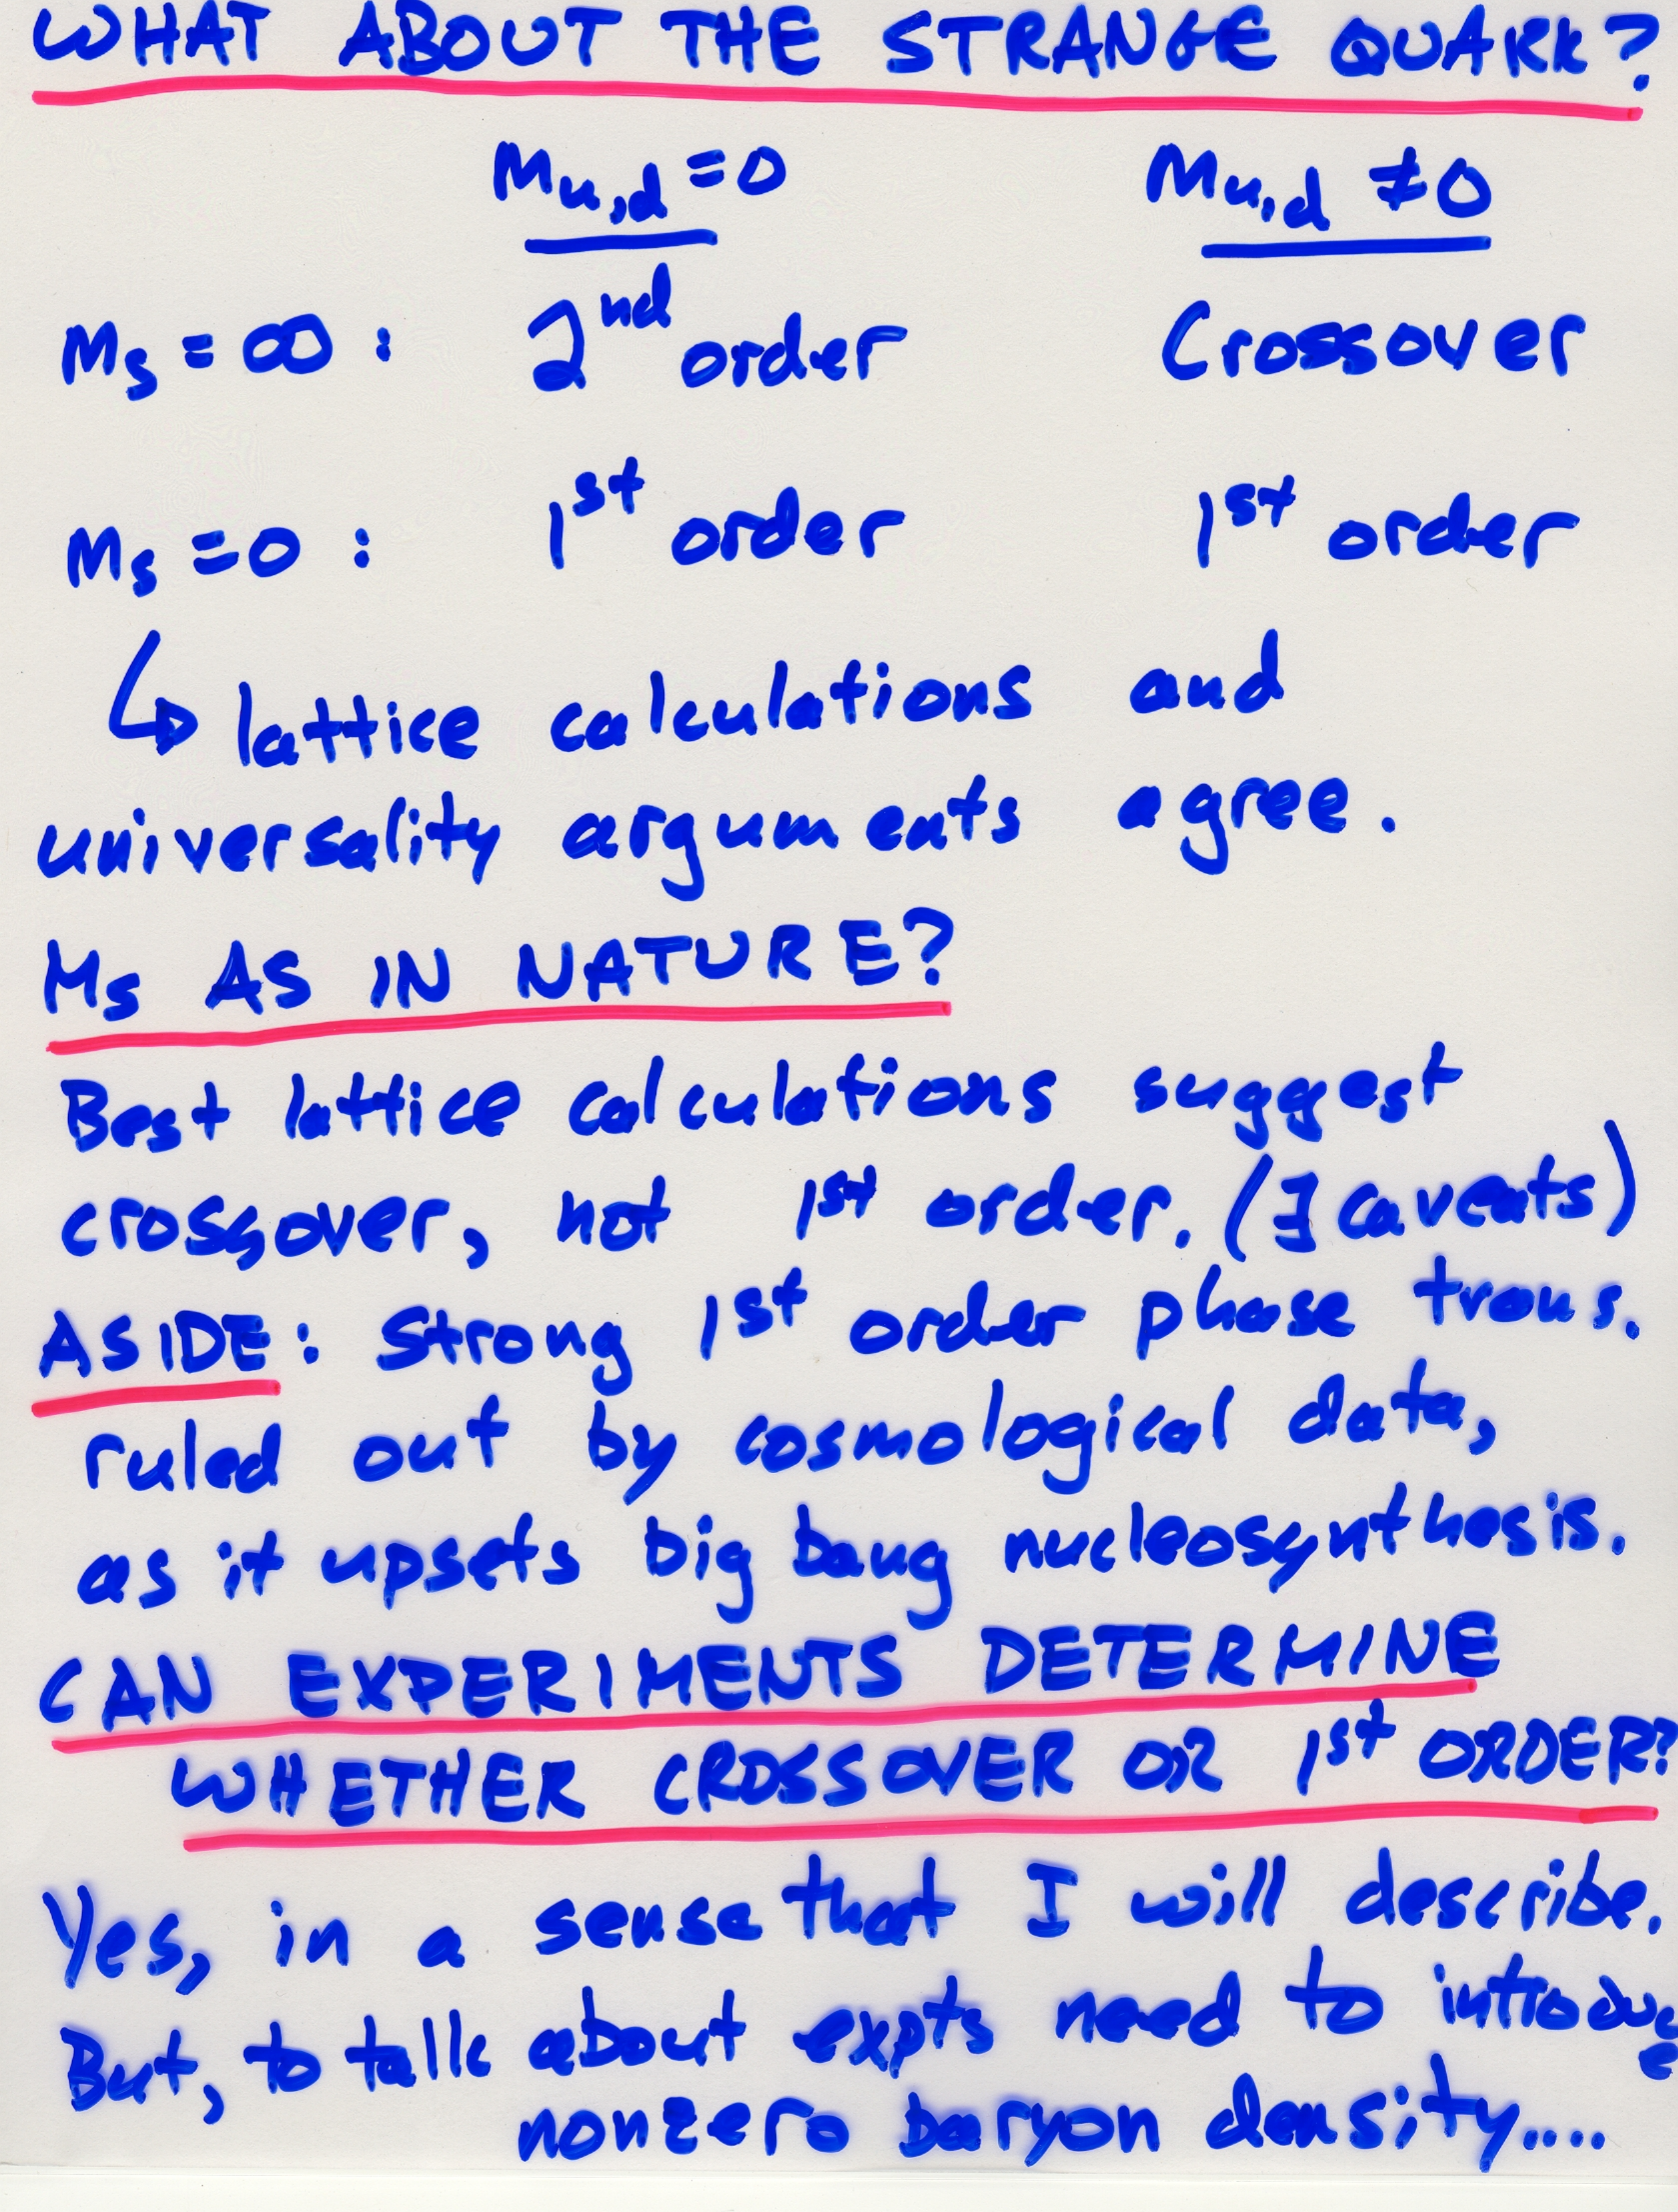 WHAT ABOUT THE STRANGE QUARK?
Mu,d =0 Mu,d ≠0
Ms = ∞ : 2nd order Crossover
Ms =0 : 1st order 1st order
↳ lattice calculations and
universality arguments agree.
Ms AS IN NATURE?
Best lattice calculations suggest
crossover, not 1st order. (∃ caveats)
ASIDE: Strong 1st order phase trans.
ruled out by cosmological data,
as it upsets big bang nucleosynthesis.
CAN EXPERIMENTS DETERMINE
WHETHER CROSSOVER OR 1st ORDER?
Yes, in a sense that I will describe.
But, to talk about expts need to introduce
nonzero baryon density....